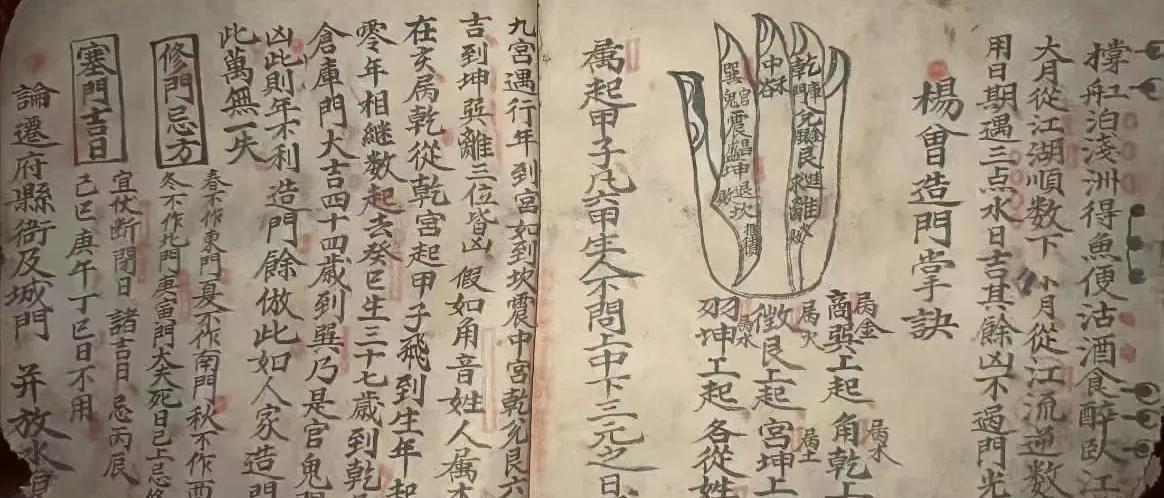 撑舡泊淺洲得魚便沽酒食醉卧江
大月從江湖順数下 小月從江流逆数
用日期遇三点水日吉其餘凶不過門光
楊曾造門掌訣
商巽上起 角乾上
局金 属木
徵艮上起 宮坤上
属火 属土
羽坤上起 各從姓
属水
乾 門庫 兌 艮 進 離
中
巽 官鬼 震 昌盛 坤 退 坎
属起甲子凡六甲生人不問上中下三元之日
九宮遇行年到宮如到坎震中宮乾兊艮六
吉到坤巽離三位皆凶 假如角音姓人属木
在亥局乾從乾宮起甲子飛到生年起
零年相継数起去癸巳生三十七歲到乾
倉庫門大吉四十四歲到巽乃是官鬼
凶此則年不利 造門餘倣此如人家造門
此萬無一失
修門忌方
春不作東門夏不作南門秋不作西
冬不作北門庚寅門大夫死日己上忌修
塞門吉日
宜伏断閉日 諸吉日 忌丙辰
己巳庚午丁巳日不用
論遷府縣衙及城門 并放水